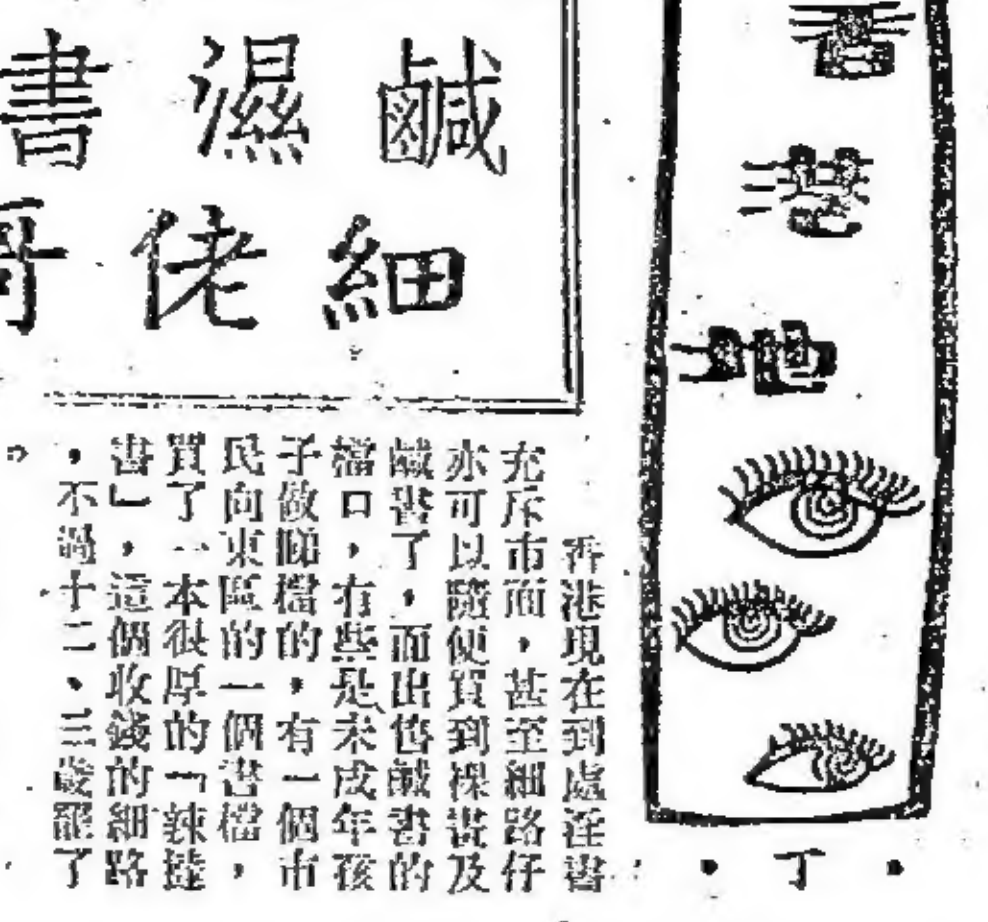 香港地
・丁・
鹹濕書
細佬哥
香港現在到處淫書
充斥市面，甚至細路仔
亦可以隨便買到裸書及
鹹書了，而出售鹹書的
檔口，有些是未成年孩
子做睇檔的，有一個市
民向東區的一個書檔，
買了一本很厚的「辣撻
書」，這個收錢的細路
，不過十二、三歲罷了
。